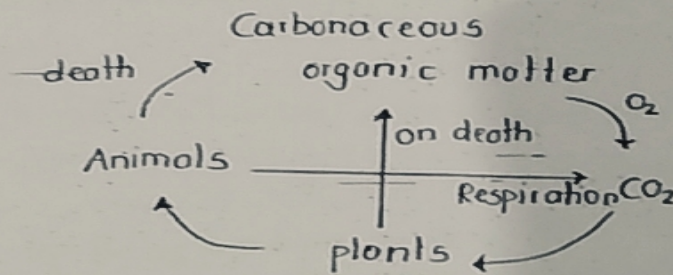 Carbonaceous
death organic matter
O₂
on death
Animals
Respiration CO₂
plants